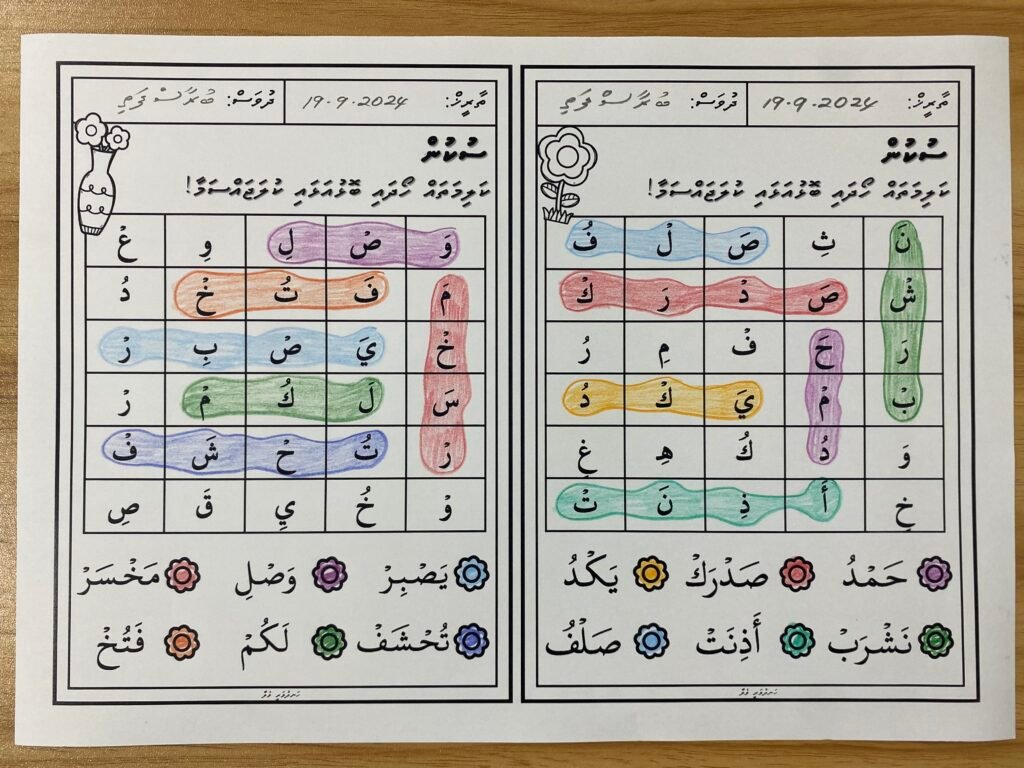 ތާރީޚް: 19.9.2024 ދުވަސް: ބުރާސްފަތި
ސުކުން
ކަލިމަތައް ހޯދައި ބޮޅުއަޅައި ކުލަޖައްސަމާ!
نَ ثِ صَ لْ فُ
شْ صَ دْ رَ كْ
رَ حَ فْ مِ رُ
بْ مْ يَ كْ دُ
وَ دُ كُ هِ غِ
خِ أَ ذِ نَ تْ
حَمْدُ صَدْرَكْ يَكْدُ
نَشْرَبْ أَذِنَتْ صَلْفُ
ތާރީޚް: 19.9.2024 ދުވަސް: ބުރާސްފަތި
ސުކުން
ކަލިމަތައް ހޯދައި ބޮޅުއަޅައި ކުލަޖައްސަމާ!
وَ صْ لِ وِ عْ
مَ فَ تُ خْ دُ
خْ يَ صْ بِ رْ
سَ لَ كُ مْ رْ
رْ تُ حْ شَ فْ
وْ خُ يِ قَ صِ
يَصْبِرْ وَصْلِ مَخْسَرْ
تُحْشَفْ لَكُمْ فَتُخْ